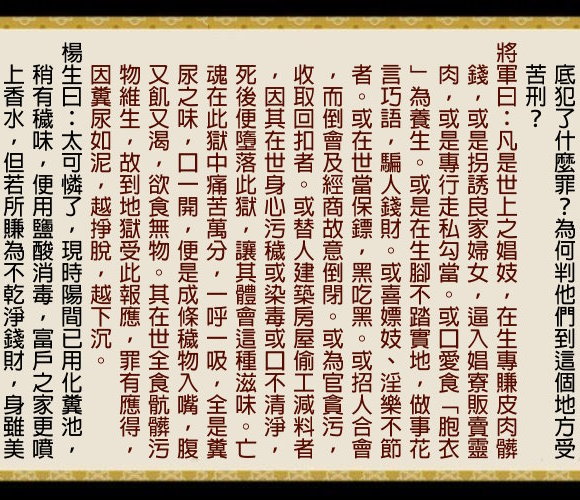 底犯了什麼罪？為何判他們到這個地方受
苦刑？
將軍曰：凡是世上之娼妓，在生專賺皮肉髒
錢，或是拐誘良家婦女，逼入娼寮販賣靈
肉，或是專行走私勾當。或口愛食「胞衣
」為養生。或是在生腳不踏實地，做事花
言巧語，騙人錢財。或喜嫖妓、淫樂不節
者。或在世當保鏢，黑吃黑。或招人合會
，而倒會及經商故意倒閉。或為官貪污，
收取回扣者。或替人建築房屋偷工減料者
，因其在世身心污穢或染毒或口不清淨，
死後便墮落此獄，讓其體會這種滋味。亡
魂在此獄中痛苦萬分，一呼一吸，全是糞
尿之味，口一開，便是成條穢物入嘴，腹
又飢又渴，欲食無物。其在世全食骯髒污
物維生，故到地獄受此報應，罪有應得，
因糞尿如泥，越掙脫，越下沉。
楊生曰：太可憐了，現時陽間已用化糞池，
稍有穢味，便用鹽酸消毒，富戶之家更噴
上香水，但若所賺為不乾淨錢財，身雖美